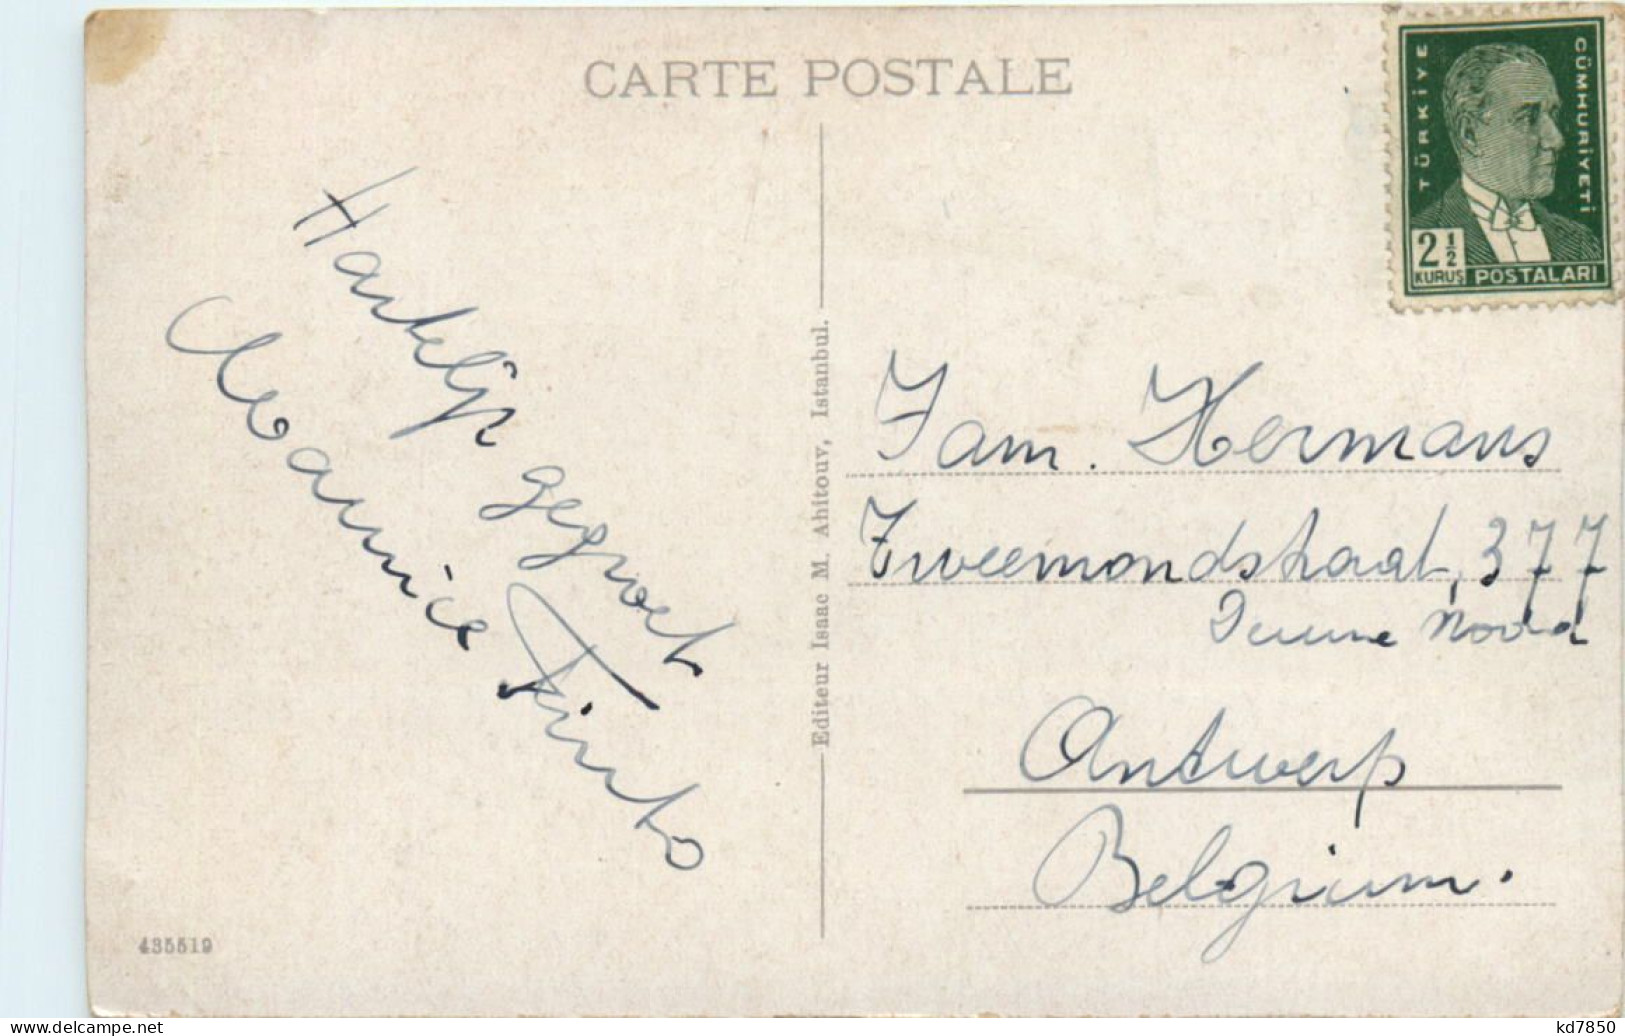 CARTE POSTALE
TÜRKİYE
CÜMHURİYETİ
2½
KURUŞ
POSTALARI
Hartelijk gegroet
Maurice
Editeur Isaac M. Ahitouv, Istanbul.
Fam. Hermans
Tweemondstraat, 377
Deurne Noord
Antwerp
Belgium.
435519
delcampe.net
kd7850